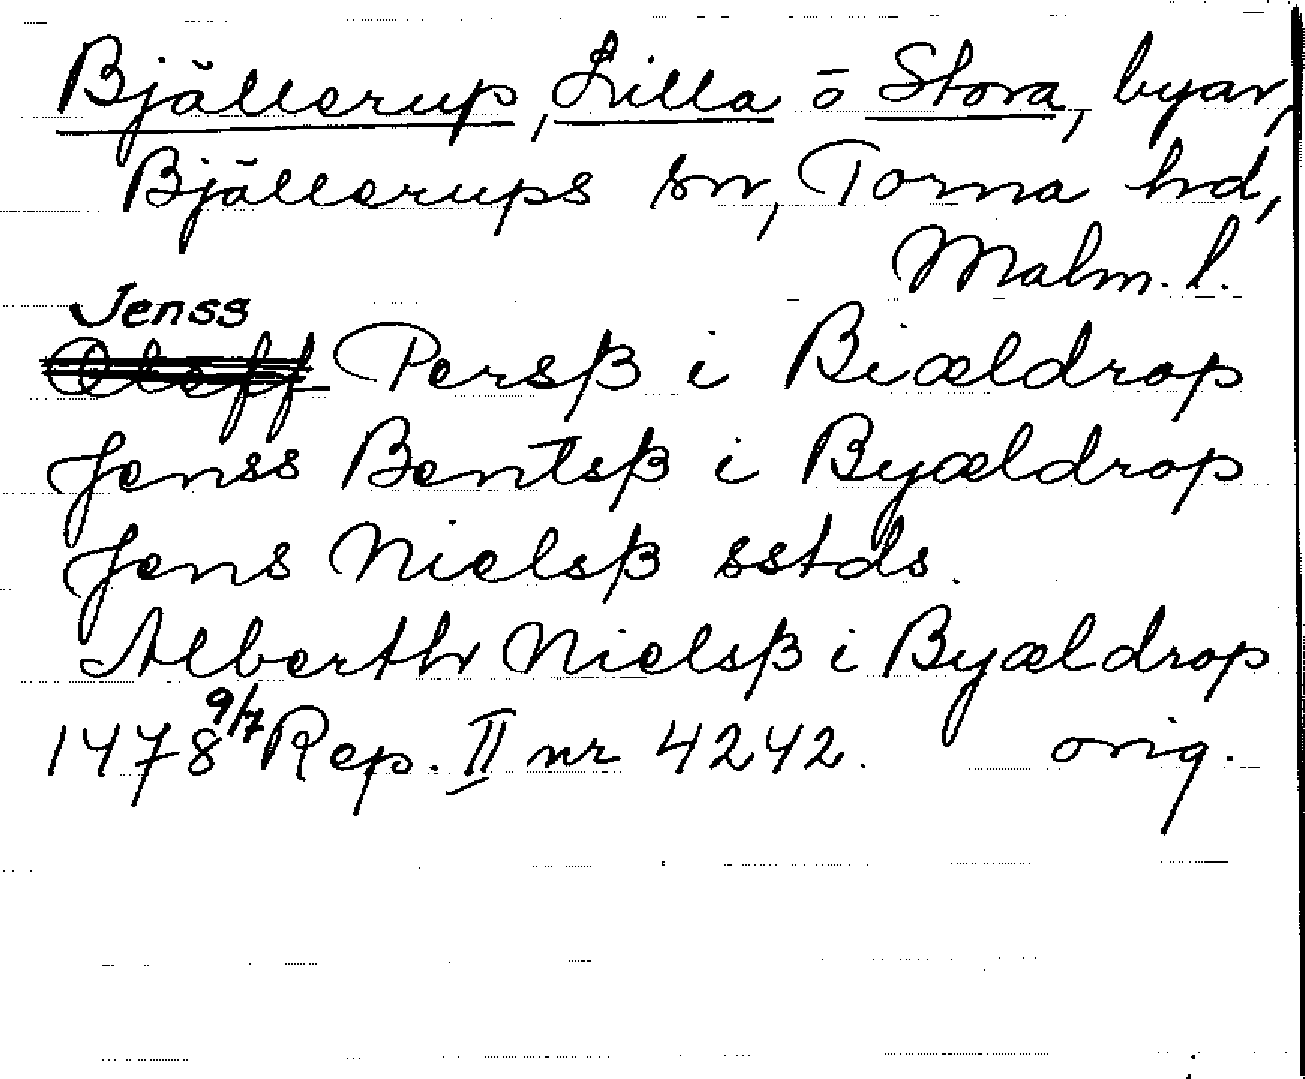 Bjällerup, Lilla o Stora, byar,
Bjällerups sn, Torna hd,
Malm. l.
Jenss
Oleff Persß i Biældrop
Jenss Bentsß i Byældrop
Jens Nielsß sstds.
Alberth Nielsß i Byældrop
1478 9/7 Rep. II nr 4242. orig.